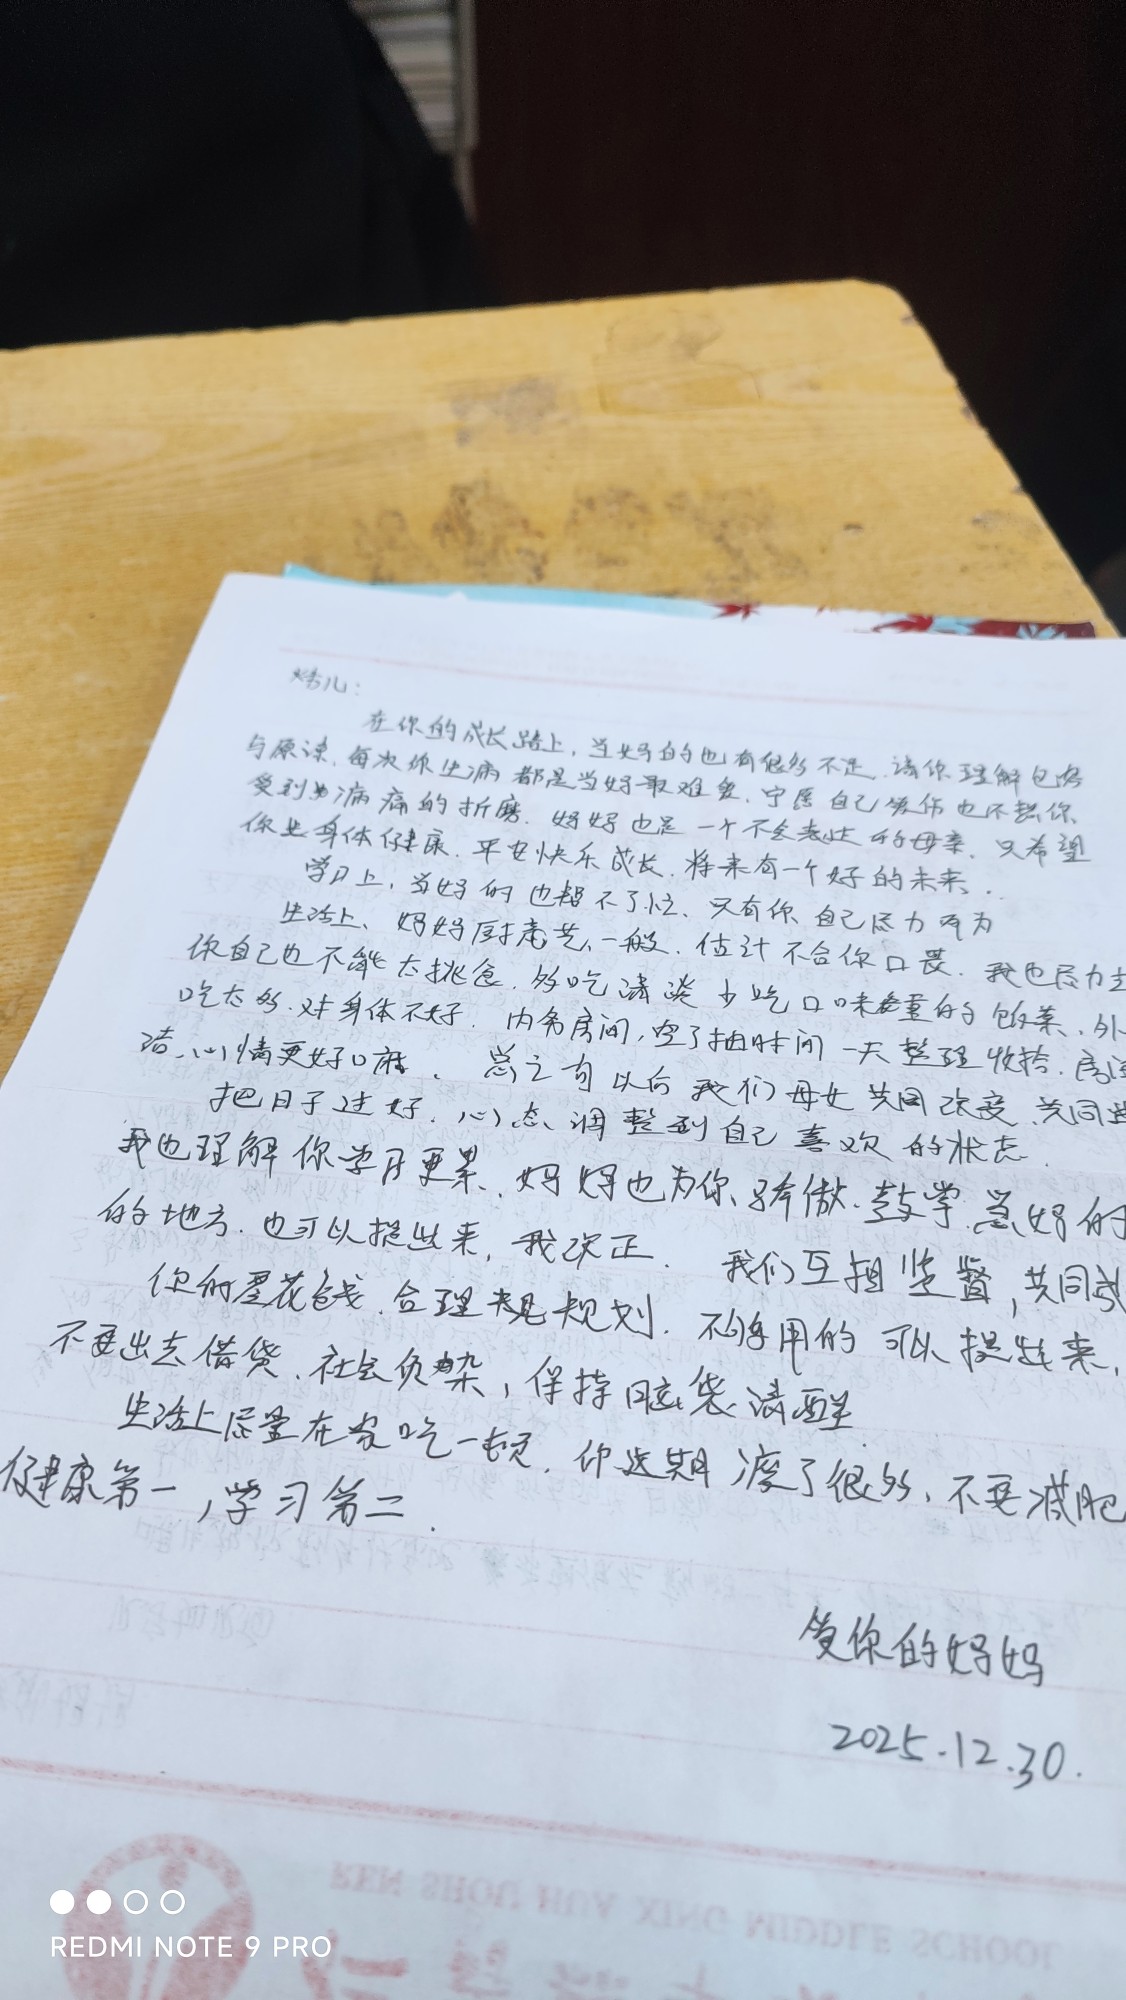 在你的成长路上，当妈的也有很多不足，请你理解包容
与原谅，每次你生病都是当妈最难受，宁愿自己受伤也不想你
受到病痛的折磨，妈妈也是一个不会表达的母亲，只希望
你身体健康，平安快乐成长，将来有一个好的未来．
学习上，当妈的也帮不了忙、只有你自己尽力而为
生活上、妈妈厨房艺一般，估计不合你口畏．我也尽力
你自己也不能太挑食．多吃清淡少吃口味重的饭菜、外
吃太多，对身体不好．内务房间，空了抽时间一天整理收拾，房
洁、心情更好口麻．总之句以后我们母女共同改变、共同
把日子过好，心态调整到自己喜欢的状态．
我也理解你学习更累、妈妈也为你骄傲．鼓学，当妈的
的地方．也可以提出来，我改正．我们互相监督，共同
你的零花钱．合理规划．不够用的可以提出来，
不要出去借贷．社会负染，保持脑袋清醒．
生活上尽量在家吃一顿．你这期瘦了很多，不要减肥
健康第一，学习第二．
爱你的妈妈
2025.12.30.
REN SHOU HUA XING MIDDLE SCHOOL
REDMI NOTE 9 PRO